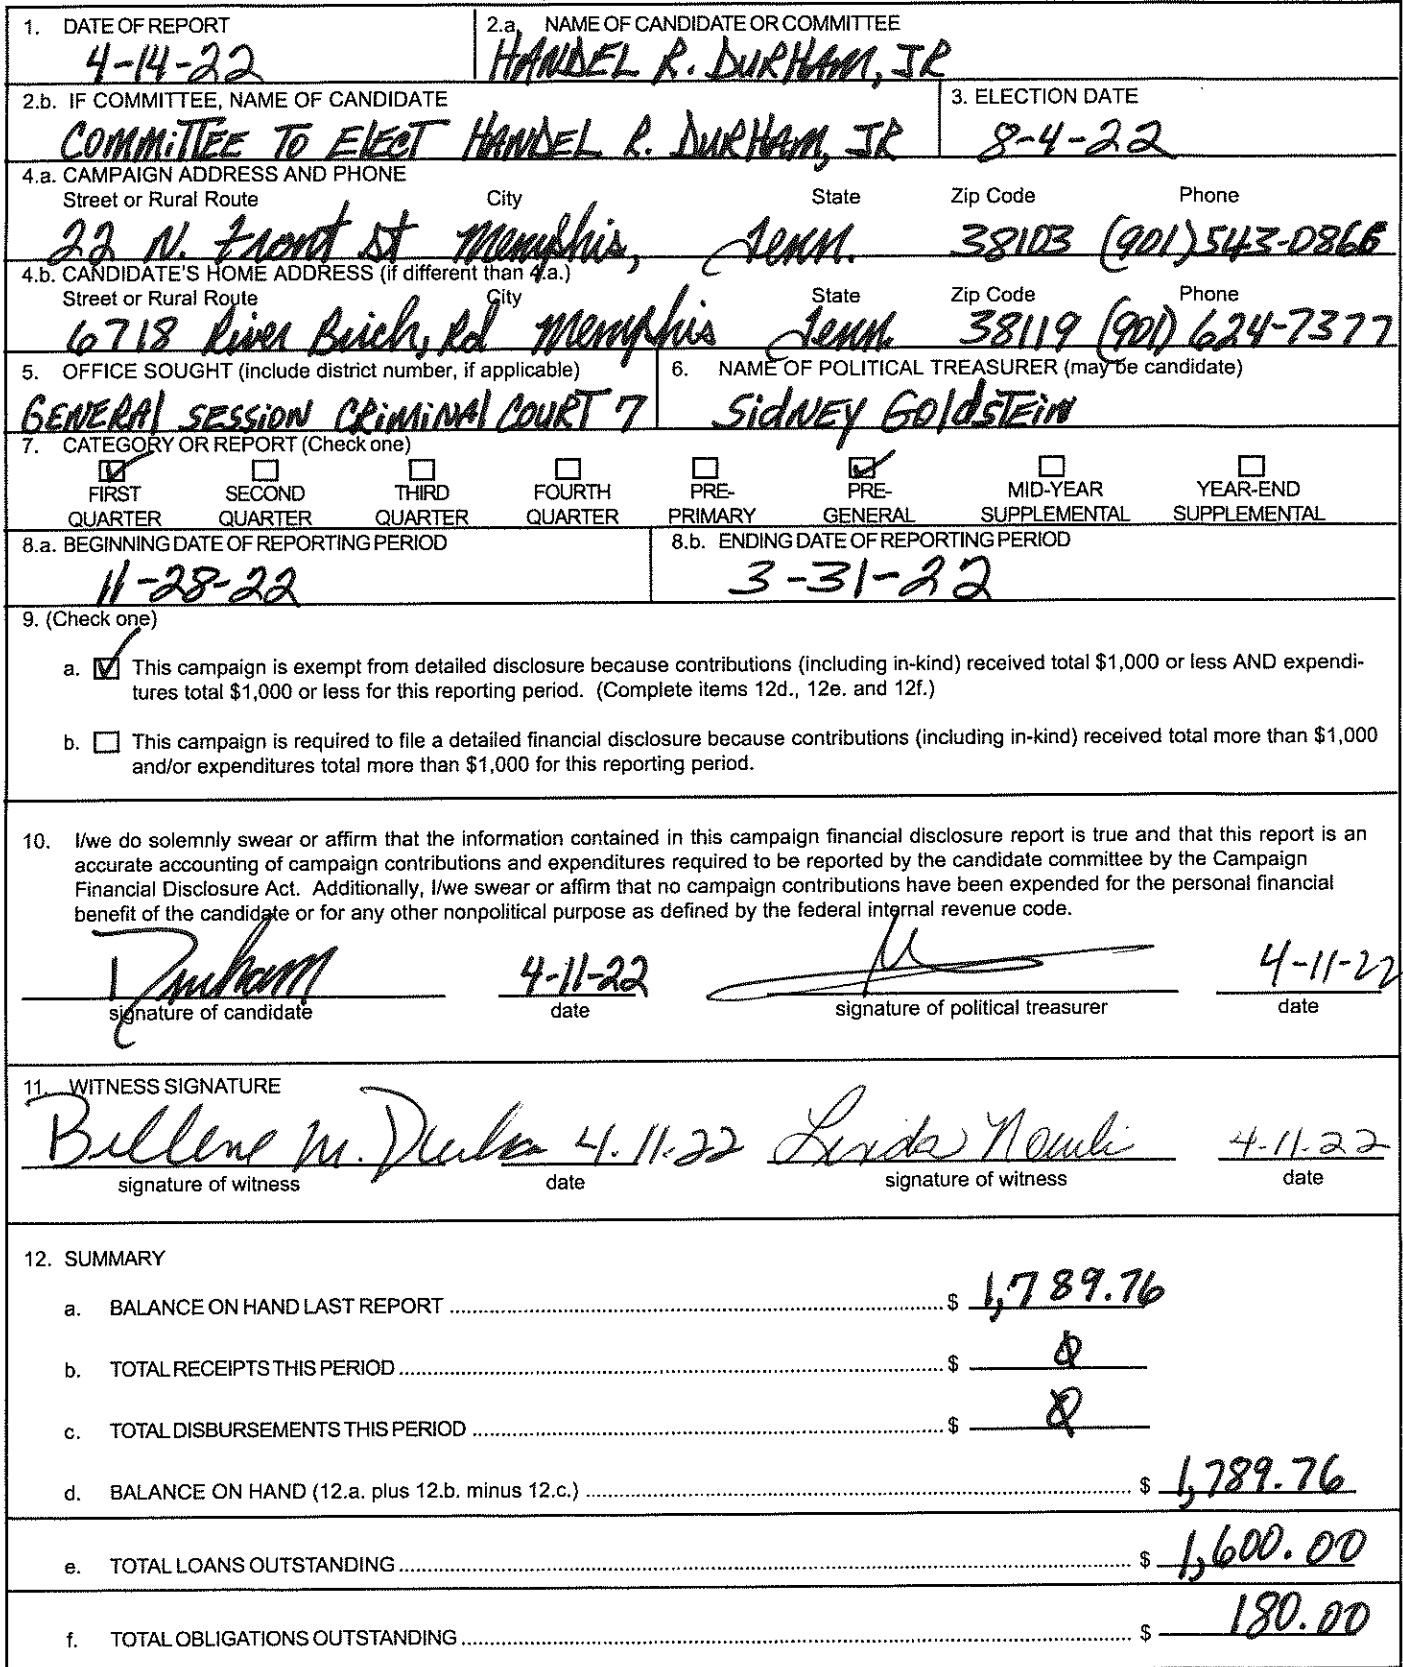 1. DATE OF REPORT
4-14-22
2.a. NAME OF CANDIDATE OR COMMITTEE
HANDEL R. DURHAM, JR
2.b. IF COMMITTEE, NAME OF CANDIDATE
COMMITTEE TO ELECT HANDEL R. DURHAM, JR
3. ELECTION DATE
8-4-22
4.a. CAMPAIGN ADDRESS AND PHONE
Street or Rural Route City State Zip Code Phone
22 N. Front St Memphis, Tenn. 38103 (901) 543-0866
4.b. CANDIDATE'S HOME ADDRESS (if different than 4.a.)
Street or Rural Route City State Zip Code Phone
6718 River Birch, Rd Memphis Tenn. 38119 (901) 624-7377
5. OFFICE SOUGHT (include district number, if applicable)
GENERAL SESSION CRIMINAL COURT 7
6. NAME OF POLITICAL TREASURER (may be candidate)
SIDNEY GOLDSTEIN
7. CATEGORY OR REPORT (Check one)
FIRST QUARTER
SECOND QUARTER
THIRD QUARTER
FOURTH QUARTER
PRE-PRIMARY
PRE-GENERAL
MID-YEAR SUPPLEMENTAL
YEAR-END SUPPLEMENTAL
8.a. BEGINNING DATE OF REPORTING PERIOD
11-28-22
8.b. ENDING DATE OF REPORTING PERIOD
3-31-22
9. (Check one)
a. This campaign is exempt from detailed disclosure because contributions (including in-kind) received total $1,000 or less AND expendi-
tures total $1,000 or less for this reporting period. (Complete items 12d., 12e. and 12f.)
b. This campaign is required to file a detailed financial disclosure because contributions (including in-kind) received total more than $1,000
and/or expenditures total more than $1,000 for this reporting period.
10. I/we do solemnly swear or affirm that the information contained in this campaign financial disclosure report is true and that this report is an
accurate accounting of campaign contributions and expenditures required to be reported by the candidate committee by the Campaign
Financial Disclosure Act. Additionally, I/we swear or affirm that no campaign contributions have been expended for the personal financial
benefit of the candidate or for any other nonpolitical purpose as defined by the federal internal revenue code.
Durham 4-11-22 4-11-22
signature of candidate date signature of political treasurer date
11. WITNESS SIGNATURE
Billene M. 4.11.22 Linda 4-11-22
signature of witness date signature of witness date
12. SUMMARY
a. BALANCE ON HAND LAST REPORT $ 1,789.76
b. TOTAL RECEIPTS THIS PERIOD $ 0
c. TOTAL DISBURSEMENTS THIS PERIOD $ 0
d. BALANCE ON HAND (12.a. plus 12.b. minus 12.c.) $ 1,789.76
e. TOTAL LOANS OUTSTANDING $ 1,600.00
f. TOTAL OBLIGATIONS OUTSTANDING $ 180.00